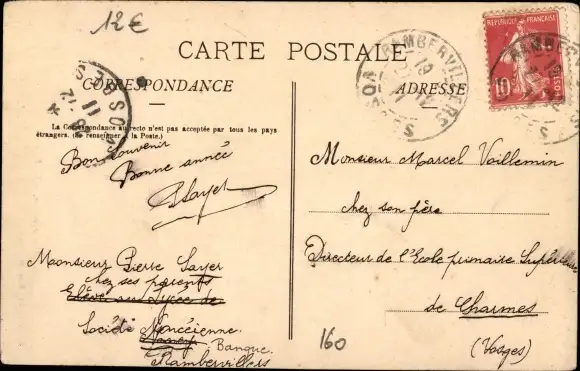 12€
CARTE POSTALE
CORRESPONDANCE
ADRESSE
La Correspondance au recto n'est pas acceptée par tous les pays
étrangers. (Se renseigner à la Poste.)
Bon souvenir
Bonne année
PSayer
Monsieur Pierre Sayer
chez ses parents
Elève au Lycée de
Société Nancéienne.
Nancy. Banque.
Rambervillers
RAMBERVILLERS
VOSGES
REPUBLIQUE FRANÇAISE
10
POSTES
RAMBERVILLERS
Monsieur Marcel Voillemin
chez son père
Directeur de l'Ecole primaire Supérieure
de Charmes
(Vosges)
160